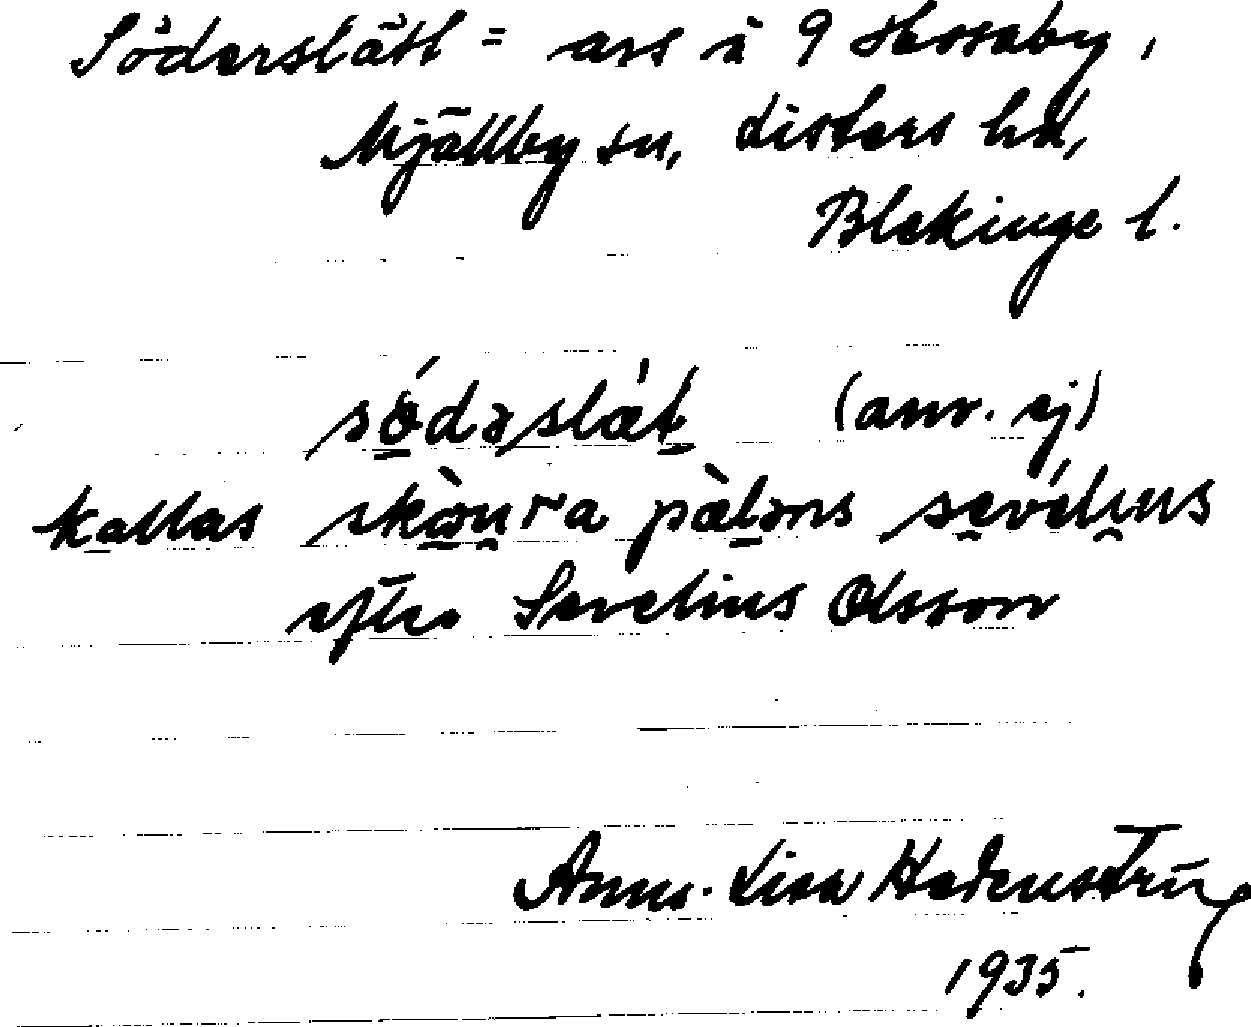 Söderslätt = ars å 9 Hosaby,
Mjällby sn, Listers hd,
Blekinge l.
södəslät (anv. ej)
kallas skəura päləns sevélius
efter Sevelius Olsson
Anna-Lisa Hedenstierna
1935.